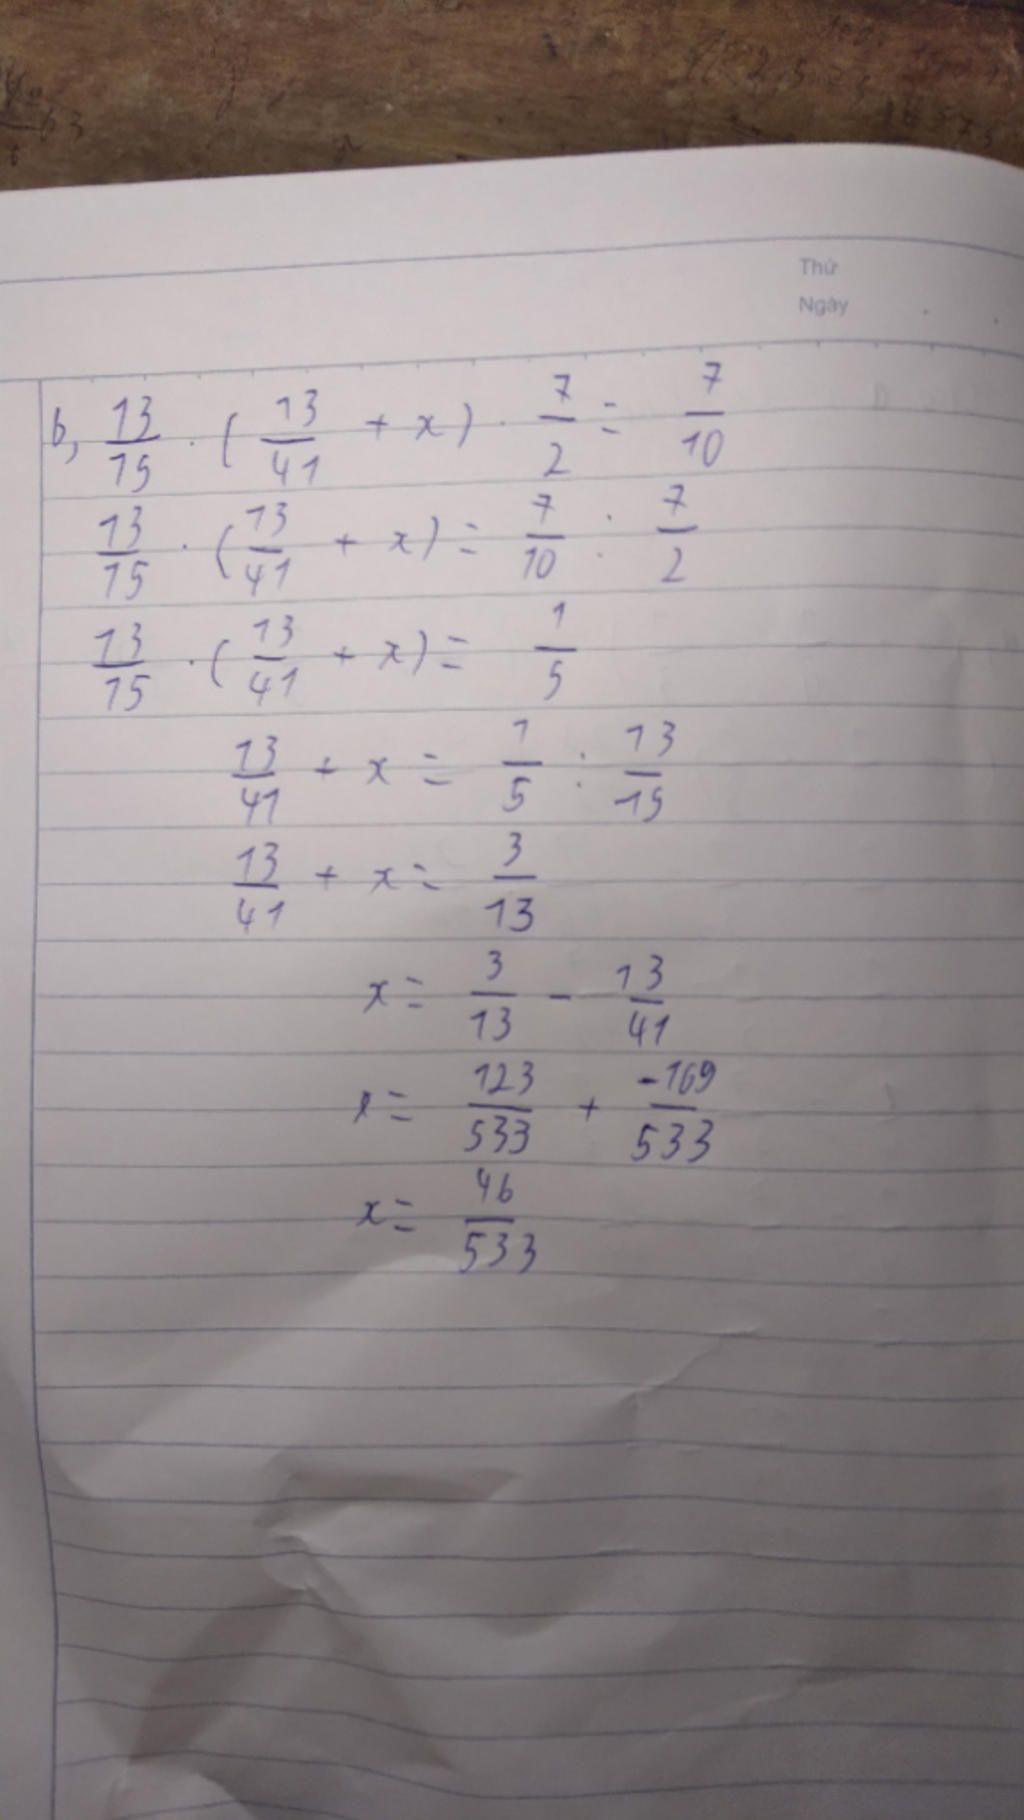 Thứ
Ngày
b, 13/15 . (13/41 + x) . 7/2 = 7/10
13/15 . (13/41 + x) = 7/10 : 7/2
13/15 . (13/41 + x) = 1/5
13/41 + x = 1/5 : 13/15
13/41 + x = 3/13
x = 3/13 - 13/41
x = 123/533 + -169/533
x = 46/533